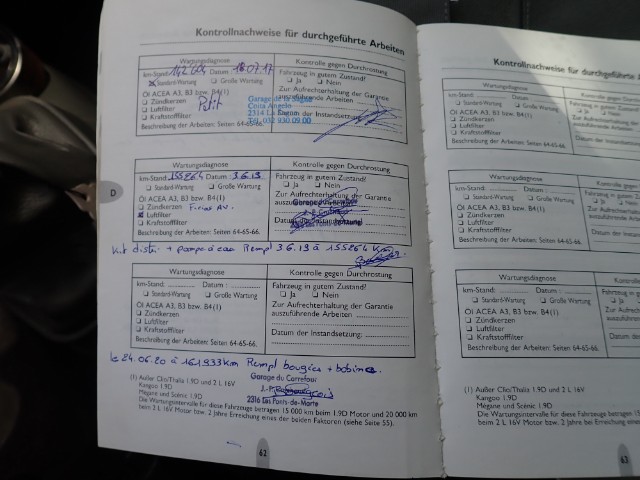 Kontrollnachweise für durchgeführte Arbeiten
Wartungsdiagnose
Kontrolle gegen Durchrostung
km-Stand: 142604 Datum: 18.07.17
Fahrzeug in gutem Zustand?
Standard-Wartung Große Wartung
Ja Nein
Öl ACEA A3, B3 bzw. B4(1)
Zur Aufrechterhaltung der Garantie
auszuführende Arbeiten
Zündkerzen
Petit
Luftfilter
Kraftstofffilter
Datum der Instandsetzung:
Garage de la
2314 La Sagne
Tél. 032 930 09 00
Beschreibung der Arbeiten: Seiten 64-65-66.
Wartungsdiagnose
Kontrolle gegen Durchrostung
km-Stand: 155264 Datum: 3.6.19
Fahrzeug in gutem Zustand?
Standard-Wartung Große Wartung
Ja Nein
Öl ACEA A3, B3 bzw. B4(1)
Zur Aufrechterhaltung der Garantie
Zündkerzen
Freins AV.
Luftfilter
Datum der Instandsetzung:
Kraftstofffilter
Beschreibung der Arbeiten: Seiten 64-65-66.
D
Kit distri + pompe à eau Rempl 3.6.19 à 155264 Km
Wartungsdiagnose
Kontrolle gegen Durchrostung
km-Stand: Datum:
Fahrzeug in gutem Zustand?
Standard-Wartung Große Wartung
Ja Nein
Öl ACEA A3, B3 bzw. B4(1)
Zur Aufrechterhaltung der Garantie
auszuführende Arbeiten:
Zündkerzen
Luftfilter
Kraftstofffilter
Datum der Instandsetzung:
Beschreibung der Arbeiten: Seiten 64-65-66.
le 24.06.20 à 161933km Rempl bougies + bobine.
Garage du Carrefour
2316 Les Ponts-de-Martel
(1) Außer Clio/Thalia 1.9D und 2 L 16V
Kangoo 1.9D
Mégane und Scénic 1.9D
Die Wartungsintervalle für diese Fahrzeuge betragen 15 000 km beim 1.9D Motor und 20 000 km
beim 2 L 16V Motor bzw. 2 Jahre bei Erreichung eines der beiden Faktoren (siehe Seite 55).
62
Kontrollnachweise für durchgefüh
Wartungsdiagnose
km-Stand: Datum:
Standard-Wartung Große Wartung
Öl ACEA A3, B3 bzw. B4(1)
Zündkerzen
Luftfilter
Kraftstofffilter
Beschreibung der Arbeiten: Seiten 64-65-66.
Wartungsdiagnose
km-Stand: Datum:
Standard-Wartung Große Wartung
Öl ACEA A3, B3 bzw. B4(1)
Zündkerzen
Luftfilter
Kraftstofffilter
Beschreibung der Arbeiten: Seiten 64-65-66.
Wartungsdiagnose
km-Stand: Datum:
Standard-Wartung Große Wartung
Öl ACEA A3, B3 bzw. B4(1)
Zündkerzen
Luftfilter
Kraftstofffilter
Beschreibung der Arbeiten: Seiten 64-65-66.
(1) Außer Clio/Thalia 1.9D und 2 L 16V
Kangoo 1.9D
Mégane und Scénic 1.9D
Die Wartungsintervalle für diese Fahrzeuge betragen
beim 2 L 16V Motor bzw. 2 Jahre bei Erreichung
63